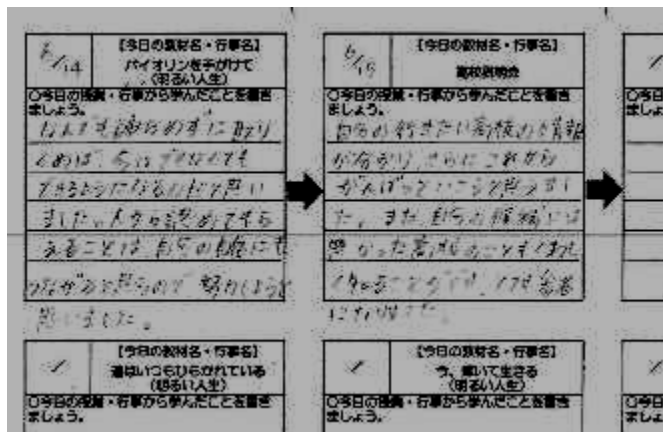 6/14
【今日の教材名・行事名】
バイオリンを手がけて
(明るい人生)
○今日の授業・行事から学んだことを書き
ましょう。
なんでも諦めずに取り
くめば、
できるようになると思い
ました。人から認めてもら
えることは自分の自信にも
つながると思うので努力しようと
思いました。
6/15
【今日の教材名・行事名】
高校説明会
○今日の授業・行事から学んだことを書き
ましょう。
自分の行きたい高校の情報
が分かり、さらにこれから
がんばっていこうと思いまし
た。また、自分の候補には
無かった高校のことも
とても参考
になりました。
/
【今日の教材名・行事名】
道はいつもひらかれている
(明るい人生)
○今日の授業・行事から学んだことを書き
ましょう。
/
【今日の教材名・行事名】
今、輝いて生きる
(明るい人生)
○今日の授業・行事から学んだことを書き
ましょう。